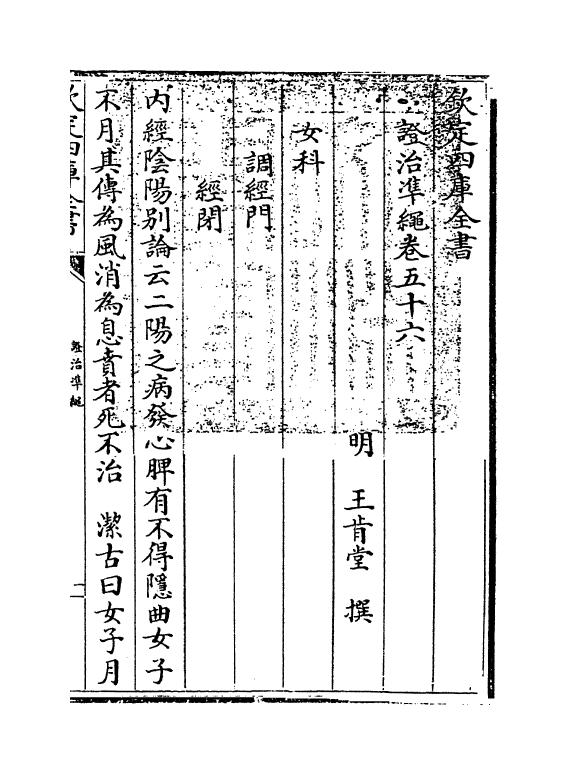 欽定四庫全書
證治準繩卷五十六
明 王肯堂 撰
女科
調經門
經閉
内經隂陽别論云二陽之病發心脾有不得隱曲女子
不月其傳為風消為息賁者死不治 潔古曰女子月
欽定四庫全書
證治準繩